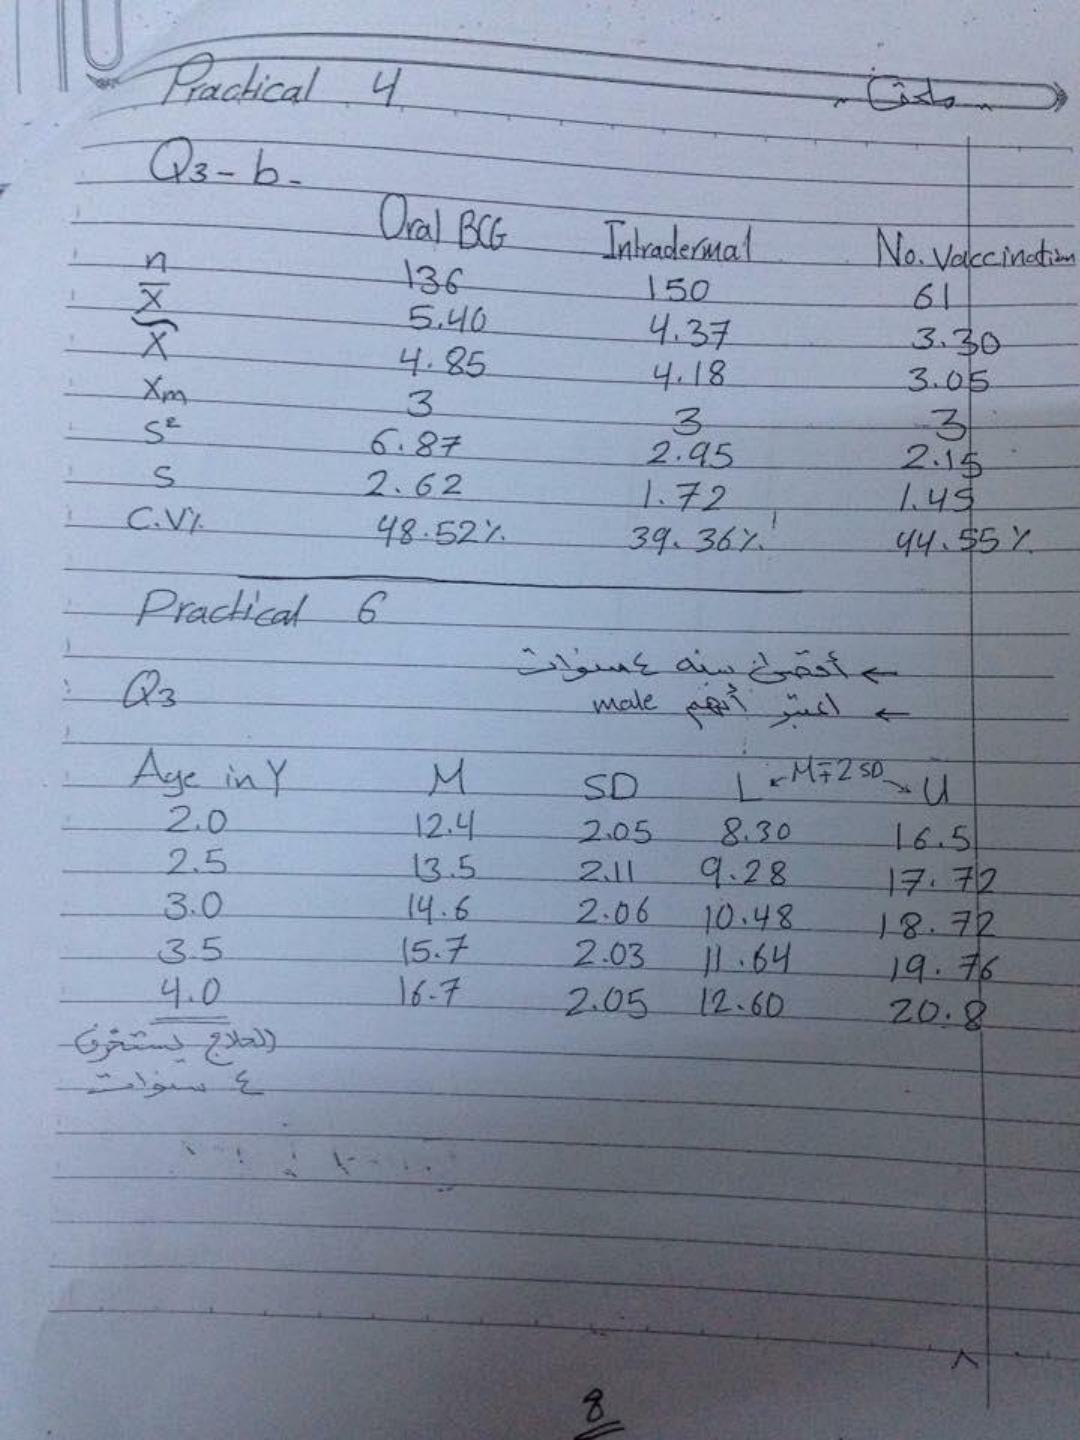 Practical 4
- ملحق -
Q3-b-
Oral BCG Intradermal No. Vaccination
n 136 150 61
X̄ 5.40 4.37 3.30
X̃ 4.85 4.18 3.05
Xm 3 3 3
S² 6.87 2.95 2.15
S 2.62 1.72 1.45
C.V% 48.52% 39.36% 44.55%
Practical 6
← أقصى سنه ٤ سنوات
Q3
← اعتبر أنهم male
Age in Y M SD L ↙ M∓2SD ↘ U
2.0 12.4 2.05 8.30 16.5
2.5 13.5 2.11 9.28 17.72
3.0 14.6 2.06 10.48 18.72
3.5 15.7 2.03 11.64 19.76
4.0 16.7 2.05 12.60 20.8
العلاج يستغرق
٤ سنوات
٨
8